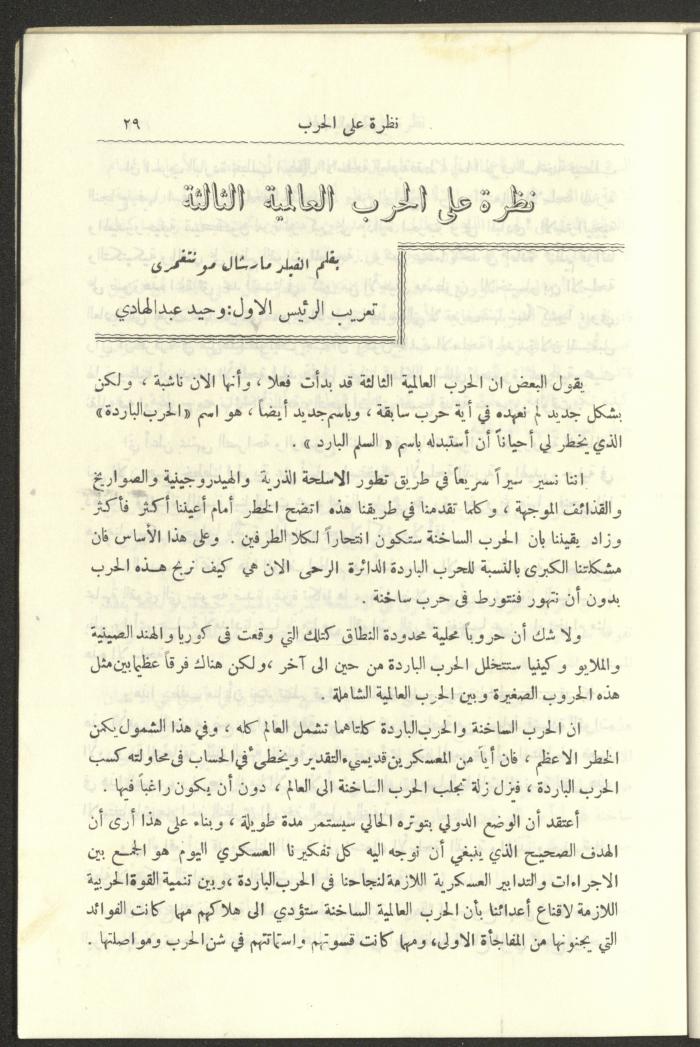 نظرة على الحرب ٢٩
نظرة على الحرب العالمية الثالثة
بقلم الفيلد مارشال مونتغمرى
تعريب الرئيس الاول: وحيد عبدالهادي
يقول البعض ان الحرب العالمية الثالثة قد بدأت فعلا ، وأنها الان ناشبة ، ولكن
بشكل جديد لم نعهده في أية حرب سابقة ، وباسم جديد أيضاً ، هو اسم «الحرب الباردة»
الذي يخطر لي أحياناً أن أستبدله باسم « السلم البارد » .
اننا نسير سيراً سريعاً في طريق تطور الاسلحة الذرية والهيدروجينية والصواريخ
والقذائف الموجهة ، وكلما تقدمنا في طريقنا هذه اتضح الخطر أمام أعيننا أكثر فأكثر
وزاد يقيننا بان الحرب الساخنة ستكون انتحاراً لكلا الطرفين . وعلى هذا الأساس فان
مشكلتنا الكبرى بالنسبة للحرب الباردة الدائرة الرحى الان هي كيف نربح هذه الحرب
بدون أن نتهور فنتورط في حرب ساخنة .
ولا شك أن حروباً محلية محدودة النطاق كتلك التي وقعت في كوريا والهند الصينية
والملايو وكينيا ستتخلل الحرب الباردة من حين الى آخر ، ولكن هناك فرقاً عظيما بين مثل
هذه الحروب الصغيرة وبين الحرب العالمية الشاملة .
ان الحرب الساخنة والحرب الباردة كلتاهما تشمل العالم كله ، وفي هذا الشمول يكمن
الخطر الاعظم ، فان أياً من المعسكرين قد يسيء التقدير ويخطئ في الحساب في محاولته كسب
الحرب الباردة ، فيزل زلة تجلب الحرب الساخنة الى العالم ، دون أن يكون راغباً فيها .
أعتقد أن الوضع الدولي بتوتره الحالي سيستمر مدة طويلة ، وبناء على هذا أرى أن
الهدف الصحيح الذي ينبغي أن نوجه اليه كل تفكيرنا العسكري اليوم هو الجمع بين
الاجراءات والتدابير العسكرية اللازمة لنجاحنا في الحرب الباردة ، وبين تنمية القوة الحربية
اللازمة لاقناع أعدائنا بأن الحرب العالمية الساخنة ستؤدي الى هلاكهم مهما كانت الفوائد
التي يجنونها من المفاجأة الاولى، ومهما كانت قسوتهم واستماتتهم في شن الحرب ومواصلتها .